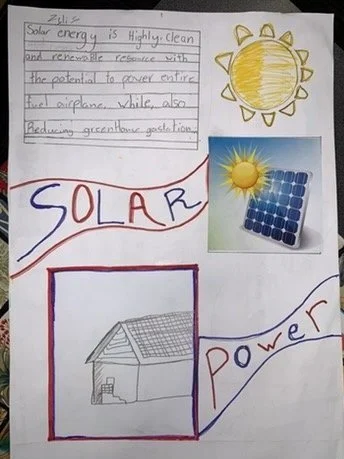 Solar energy is Highly. Clean
and renewable resource with
the potential to power entire
fuel airplane, while, also
Reducing green
SOLAR
Power